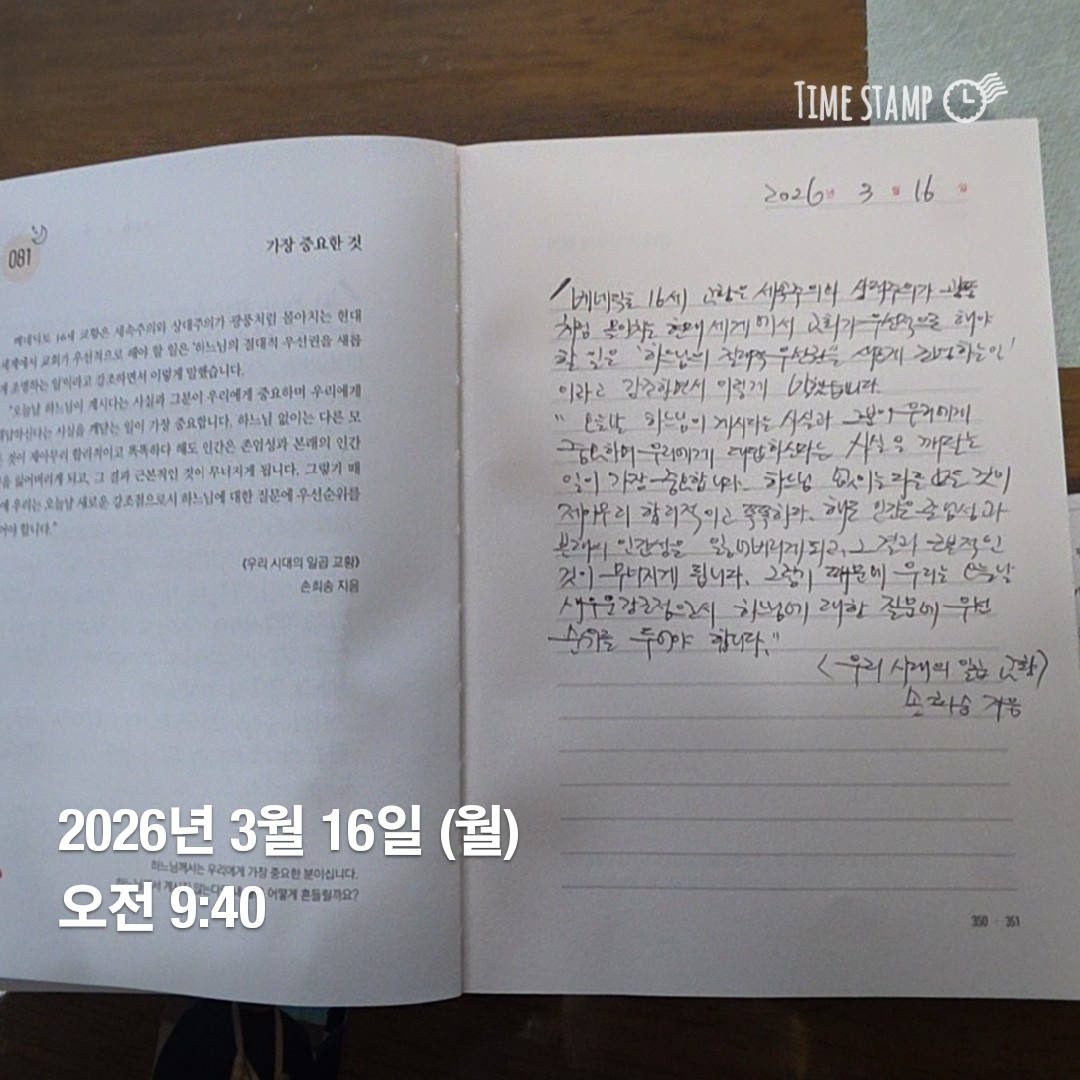 TIME STAMP
081
가장 중요한 것
베네딕토 16세 교황은 세속주의와 상대주의가 광풍처럼 몰아치는 현대
세계에서 교회가 우선적으로 해야 할 일은 '하느님의 절대적 우선권을 새롭
게 조명하는 일'이라고 강조하면서 이렇게 말했습니다.
"오늘날 하느님이 계시다는 사실과 그분이 우리에게 중요하며 우리에게
대답하신다는 사실을 깨닫는 일이 가장 중요합니다. 하느님 없이는 다른 모
든 것이 제아무리 합리적이고 똑똑하다 해도 인간은 존엄성과 본래의 인간
성을 잃어버리게 되고, 그 결과 근본적인 것이 무너지게 됩니다. 그렇기 때
문에 우리는 오늘날 새로운 강조점으로서 하느님에 대한 질문에 우선순위를
두어야 합니다."
《우리 시대의 일곱 교황》
손희송 지음
하느님께서는 우리에게 가장 중요한 분이십니다.
어떻게 흔들릴까요?
2026년 3월 16일
베네딕토 16세 교황은 세속주의와 상대주의가 광풍
처럼 몰아치는 현대 세계에서 교회가 우선적으로 해야
할 일은 '하느님의 절대적 우선권을 새롭게 조명하는 일'
이라고 강조하면서 이렇게 말했습니다.
" 오늘날 하느님이 계시다는 사실과 그분이 우리에게
중요하며 우리에게 대답하신다는 사실을 깨닫는
일이 가장 중요합니다. 하느님 없이는 다른 모든 것이
제아무리 합리적이고 똑똑하다 해도 인간은 존엄성과
본래의 인간성을 잃어버리게 되고, 그 결과 근본적인
것이 무너지게 됩니다. 그렇기 때문에 우리는 오늘날
새로운 강조점으로서 하느님에 대한 질문에 우선
순위를 두어야 합니다."
<우리 시대의 일곱 교황>
손희송 지음
350 · 351
2026년 3월 16일 (월)
오전 9:40